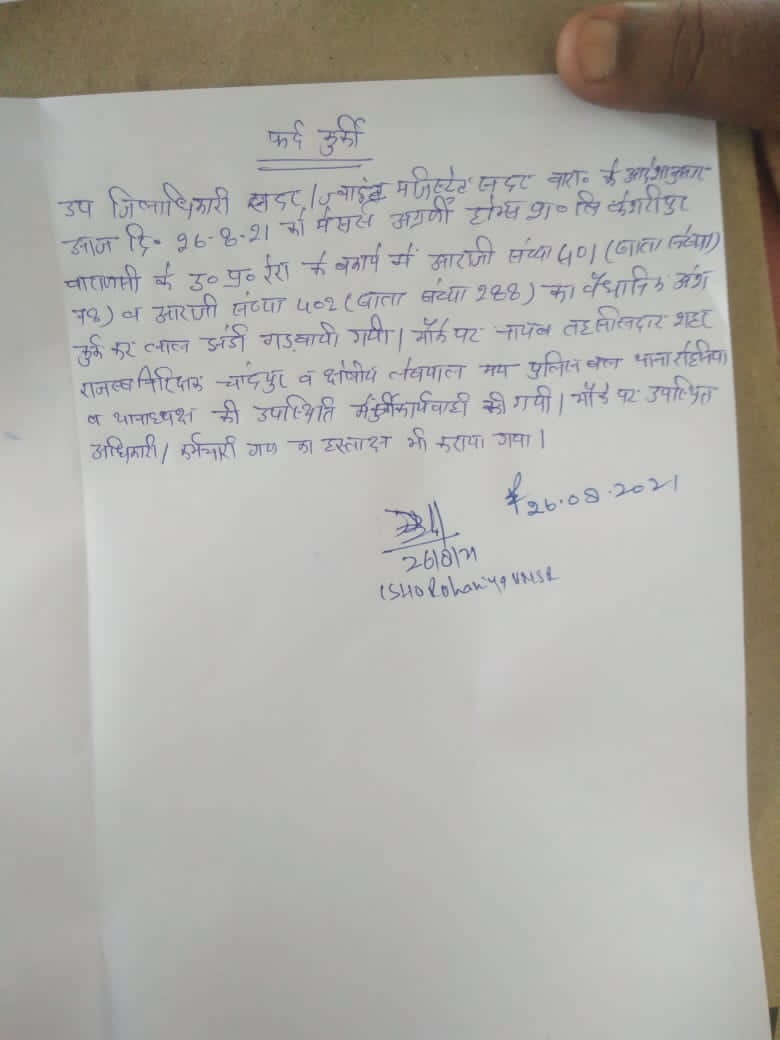 फर्द कुर्की
उप जिलाधिकारी सदर/ज्वाइंट मजिस्ट्रेट सदर वारा० के आदेशानुसार
आज दि० 26.8.21 को मेसर्स अग्रणी होम्स प्रा० लि केशरीपुर
वाराणसी के उ० प्र० रेरा के बकाये में आराजी संख्या 401 (खाता संख्या
78) व आराजी संख्या 402 (खाता संख्या 288) का वैधानिक अंश
कुर्क कर लाल झंडी गड़वायी गयी। मौके पर नायब तहसीलदार शहर
राजस्व निरिक्षक चांदपुर व क्षेत्रीय लेखपाल मय पुलिस बल थाना रोहनिया
व थानाध्यक्ष की उपस्थिति में कुर्की कार्यवाही की गयी। मौके पर उपस्थित
अधिकारी/कर्मचारी गण का हस्ताक्षर भी कराया गया।
26.08.2021
26/8/21
SHO Rohaniya VNSR